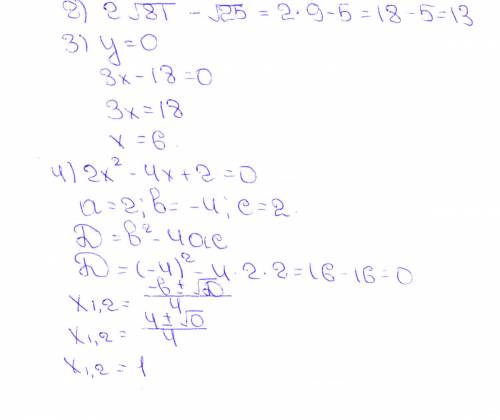 2) 2√81 - √25 = 2·9-5=18-5=13
3) y=0
3x-18=0
3x=18
x=6
4) 2x² - 4x + 2 = 0
a=2; b= -4; c=2
D=b²-4ac
D=(-4)²-4·2·2=16-16=0
x₁,₂ = (-b±√D)/4
x₁,₂ = (4±√0)/4
x₁,₂ = 1